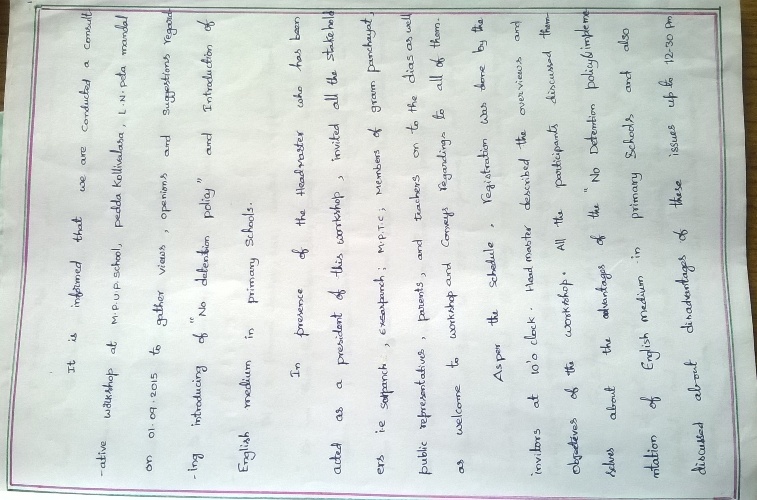 It is informed that we are conducted a consult
-ative workshop at M.P.U.P. School, pedda Kollivalasa, L.N. peta mandal
on 01.09.2015 to gather views, openions and Suggestions regard
-ing introducing of "No detention policy" and Introduction of
English medium in primary Schools.
In presence of the Headmaster who has been
acted as a president of this workshop, invited all the Stake hold
ers ie sarpanch, exsarpanch; M.P.T.C; Members of gram panchayat,
public representatives, parents, and teachers on to the dias as well
as welcome to workshop and Conveys regardings to all of them.
As per the Schedule, registration was done by the
invitors at 10'o clock. Head master described the overviews and
objectives of the workshop. All the participants discussed them
selves about the advantages of the "No Detention policy & impleme
ntation of English medium in primary Schools and also
discussed about disadvantages of these issues up to 12-30 pm